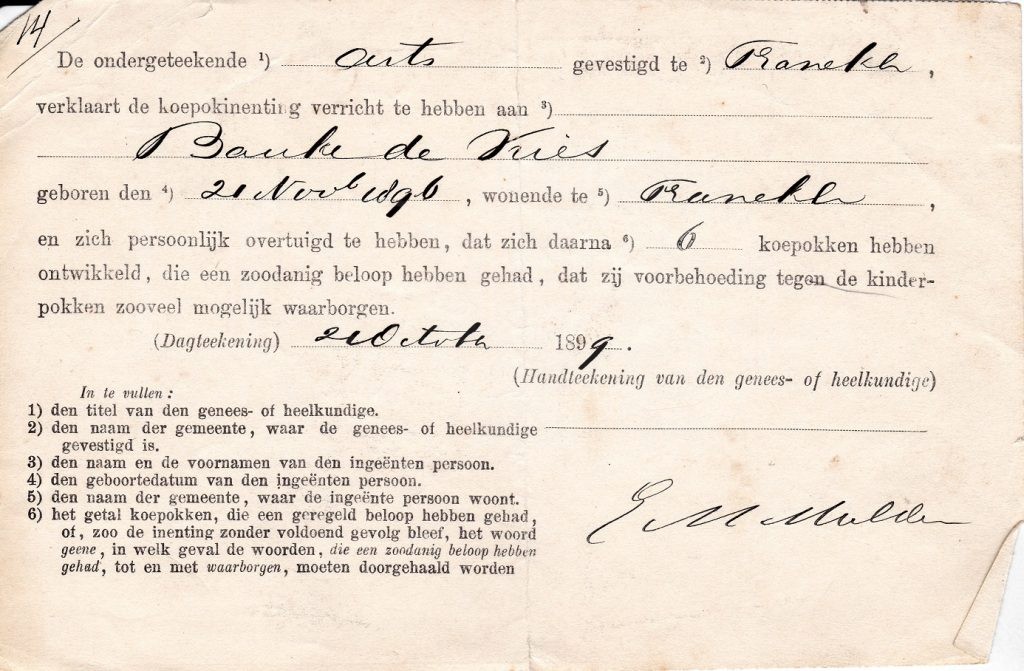 14
De ondergeteekende ¹) arts gevestigd te ²) Franeker,
verklaart de koepokinenting verricht te hebben aan ³)
Bauke de Vries
geboren den ⁴) 21 Novb 1896, wonende te ⁵) Franeker,
en zich persoonlijk overtuigd te hebben, dat zich daarna ⁶) 6 koepokken hebben
ontwikkeld, die een zoodanig beloop hebben gehad, dat zij voorbehoeding tegen de kinder-
pokken zooveel mogelijk waarborgen.
(Dagteekening) 21 October 1899.
(Handteekening van den genees- of heelkundige)
In te vullen:
1) den titel van den genees- of heelkundige.
2) den naam der gemeente, waar de genees- of heelkundige
gevestigd is.
3) den naam en de voornamen van den ingeënten persoon.
4) den geboortedatum van den ingeënten persoon.
5) den naam der gemeente, waar de ingeënte persoon woont.
6) het getal koepokken, die een geregeld beloop hebben gehad,
of, zoo de inenting zonder voldoend gevolg bleef, het woord
geene, in welk geval de woorden, die een zoodanig beloop hebben
gehad, tot en met waarborgen, moeten doorgehaald worden
E M Mulder